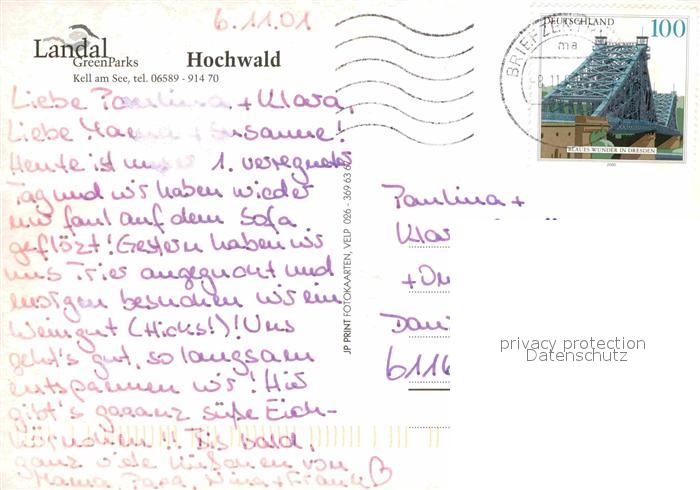 6.11.01
Landal
GreenParks
Hochwald
Kell am See, tel. 06589 - 914 70
Liebe Paulina + Klara,
Liebe Mama + Susanne!
Heute ist unser 1. verregneter
Tag und wir haben wieder
nur faul auf dem Sofa
geflözt! Gestern haben wir
uns Trier angeguckt und
morgen besuchen wir ein
Weingut (Hicks!)! Uns
geht's gut, so langsam
entspannen wir! Hier
gibt's gaganz süße Eich-
hörnchen!! Bis bald,
ganz viele Küßchen von
Mama, Papa, Nina + Frank
JP PRINT FOTOKAARTEN, VELP 026 - 369 63 6
BRIEFZENTRUM
ma
DEUTSCHLAND
100
BLAUES WUNDER IN DRESDEN
2000
Paulina +
Klar
+ Om
Dani
6116
privacy protection
Datenschutz